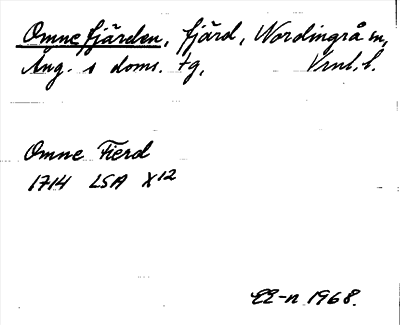 Omnefjärden, fjärd, Nordingrå sn,
Ång. s doms. tg, Vrnl. l.
Omne Fierd
1714 LSA X12
EE-n 1968.